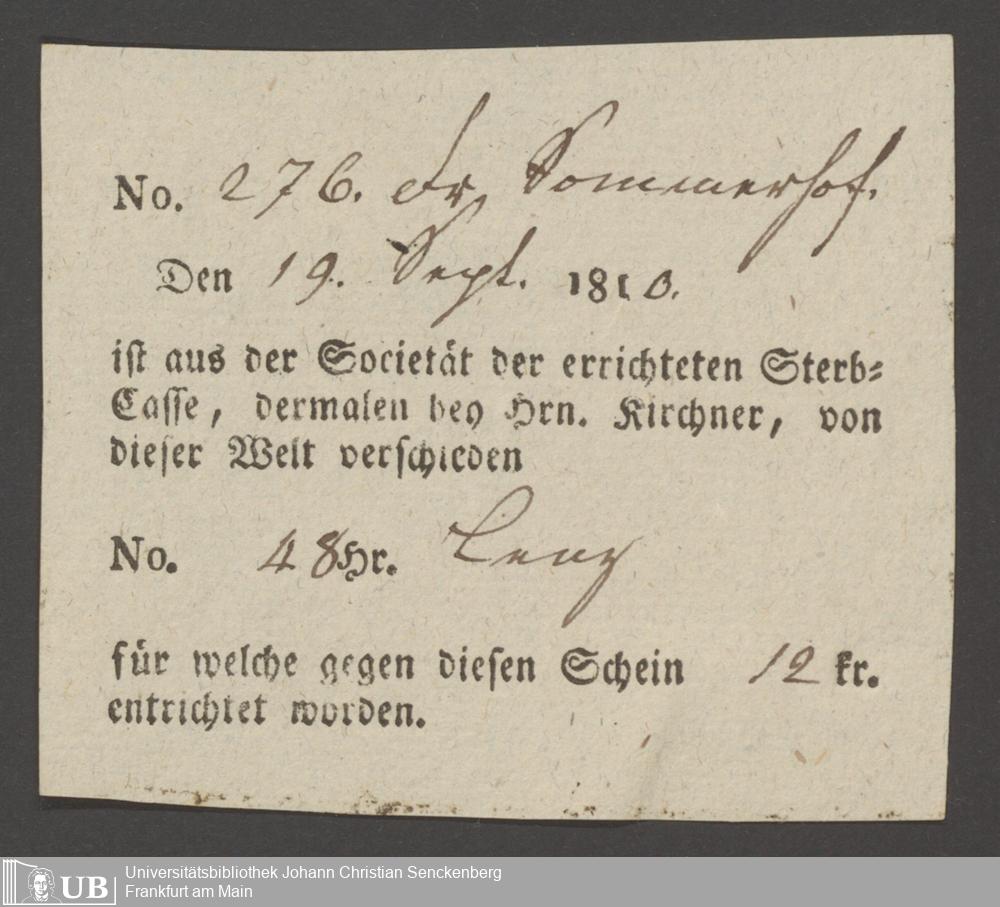 No. 276. Fr. Sommerhof.
Den 19. Sept. 1810.
ist aus der Societät der errichteten Sterb-
Casse, dermalen bey Hrn. Kirchner, von
dieser Welt verschieden
No. 48 Hr. Lenz
für welche gegen diesen Schein 12 kr.
entrichtet worden.
UB
Universitätsbibliothek Johann Christian Senckenberg
Frankfurt am Main